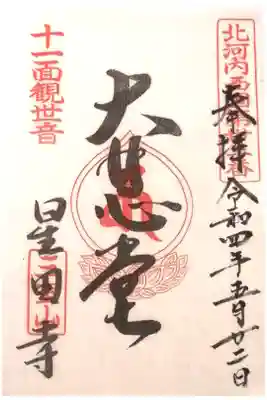 北河内西国
奉拝 令和四年五月廿二日
大悲堂
十一面観世音
星田寺